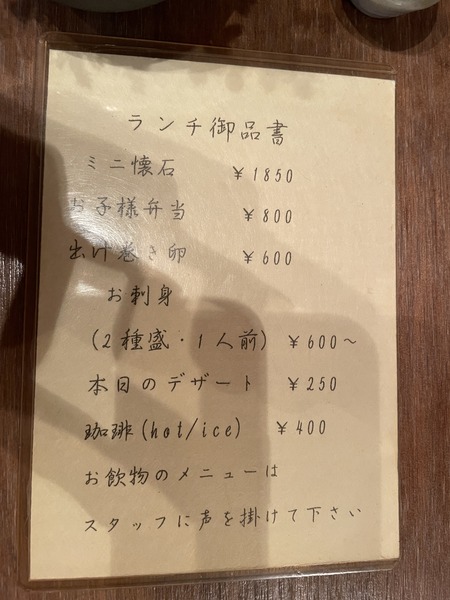 ランチ御品書
ミニ懐石 ¥1850
お子様弁当 ¥800
出汁巻き卵 ¥600
お刺身
(2種盛・1人前) ¥600～
本日のデザート ¥250
珈琲(hot/ice) ¥400
お飲物のメニューは
スタッフに声を掛けて下さい